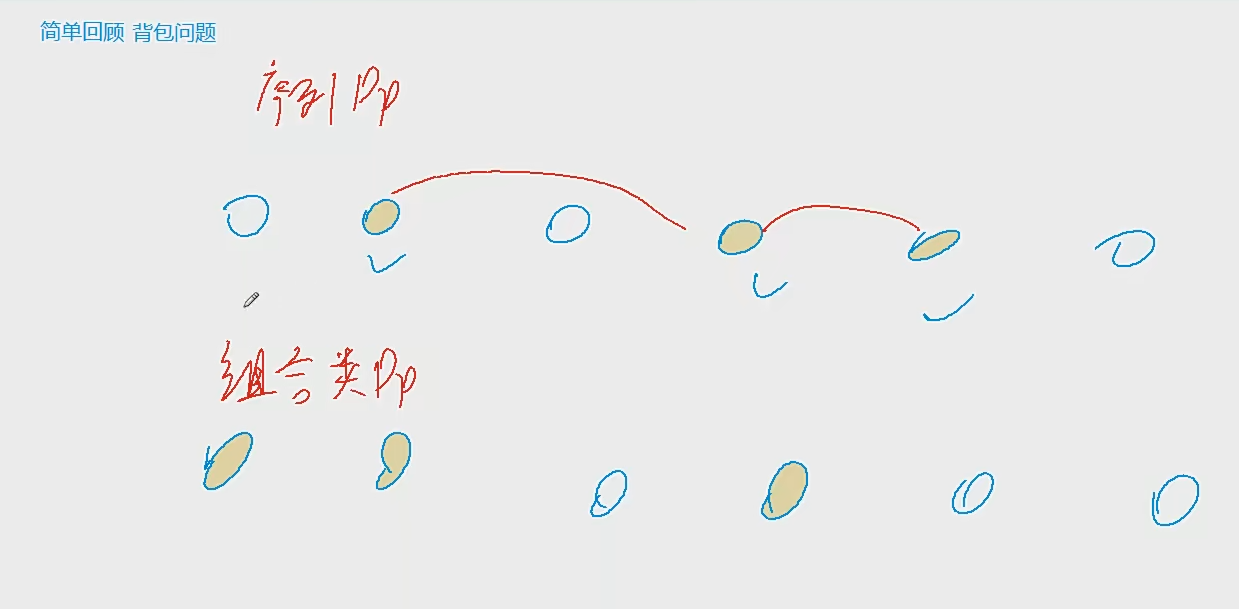 简单回顾 背包问题
序列 Dp
组合类 Dp